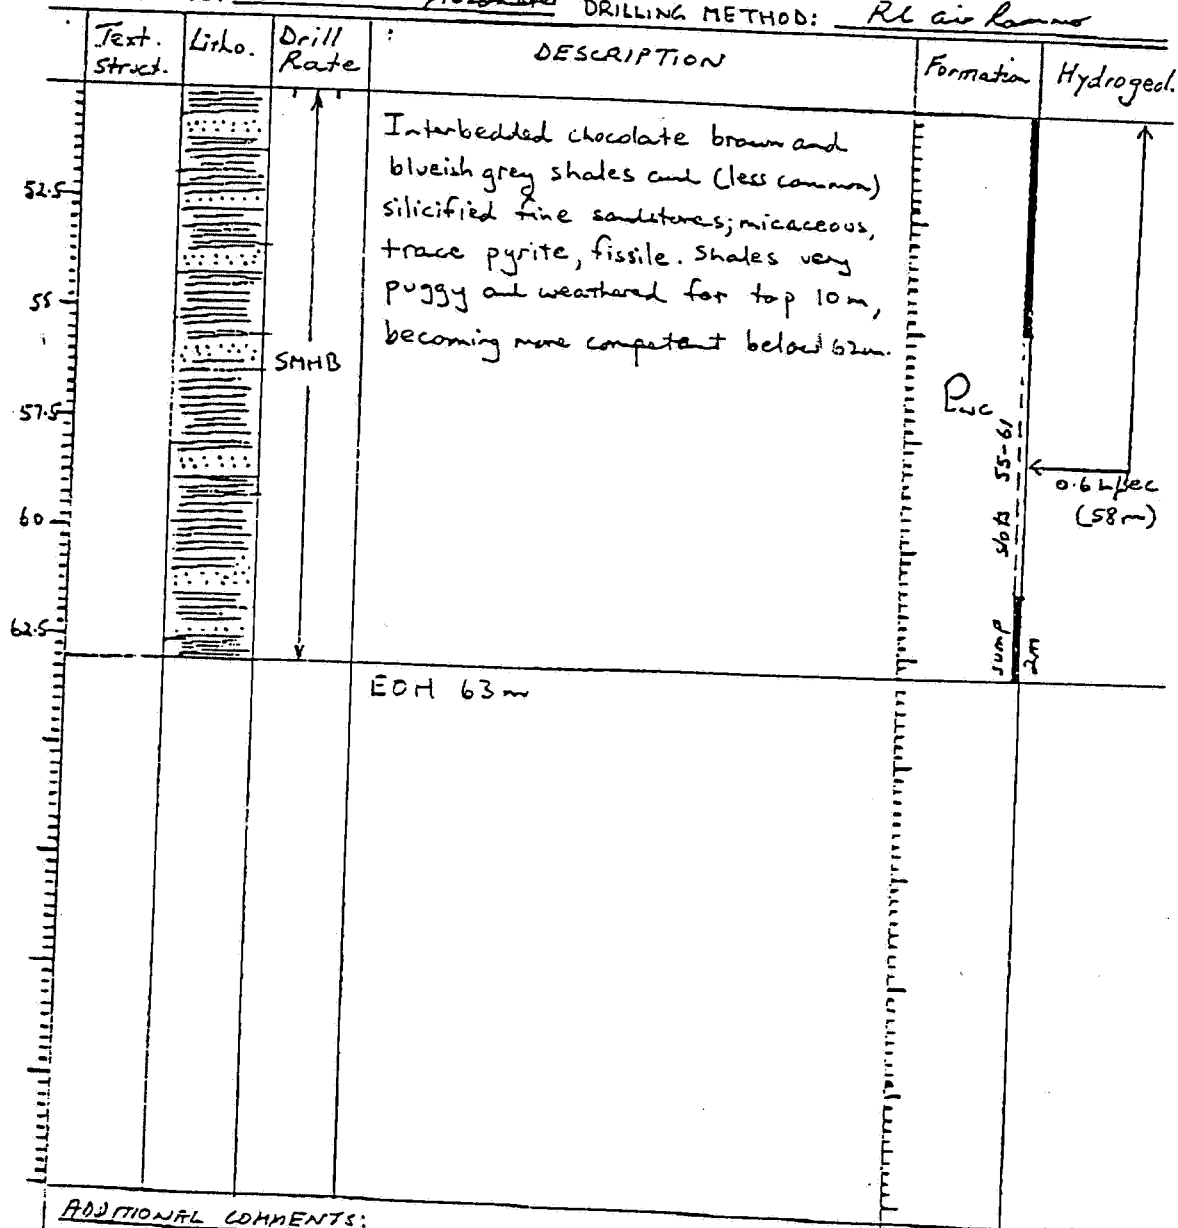 DRILLING METHOD: RC air hammer
Text. Struct.
Litho.
Drill Rate
:
DESCRIPTION
Formation
Hydrogeol.
Interbedded chocolate brown and
blueish grey shales and (less common)
silicified fine sandstones; micaceous,
trace pyrite, fissile. Shales very
puggy and weathered for top 10m,
becoming more competent below 62m.
52.5
55
57.5
60
62.5
SMHB
Pwc
slots 55-61
0.6 L/sec
(58m)
sump
2m
EOH 63m
ADDITIONAL COMMENTS: